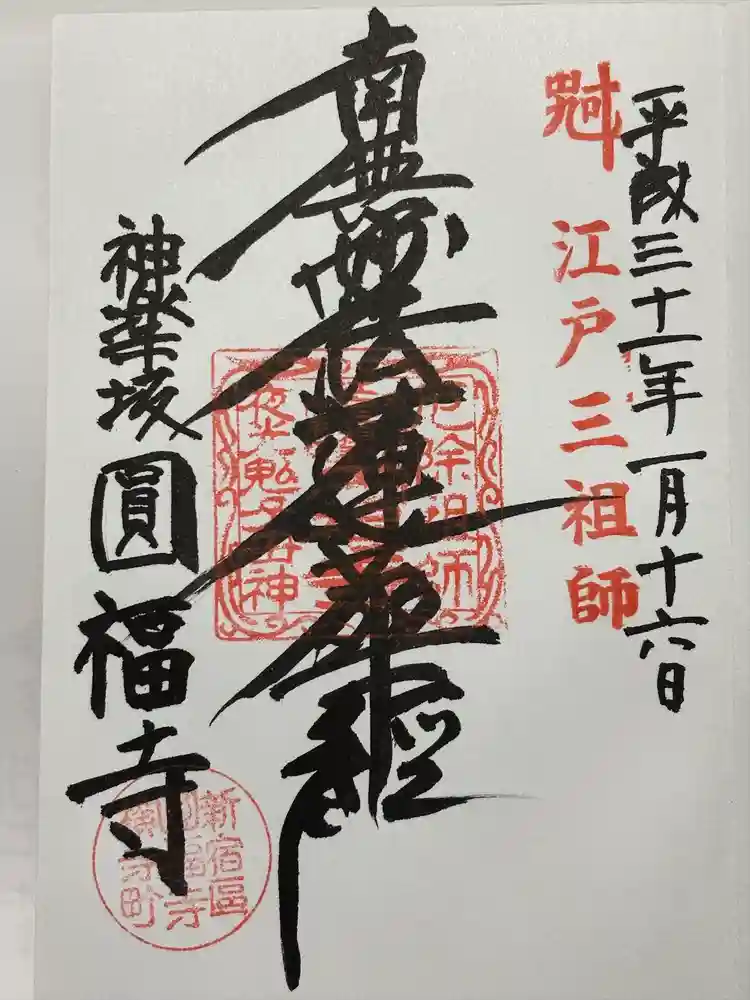 平成三十一年一月十六日
江戸三祖師
南無妙法蓮華經
厄除祖師
神楽坂
圓福寺
新宿區
圓福寺
横寺町